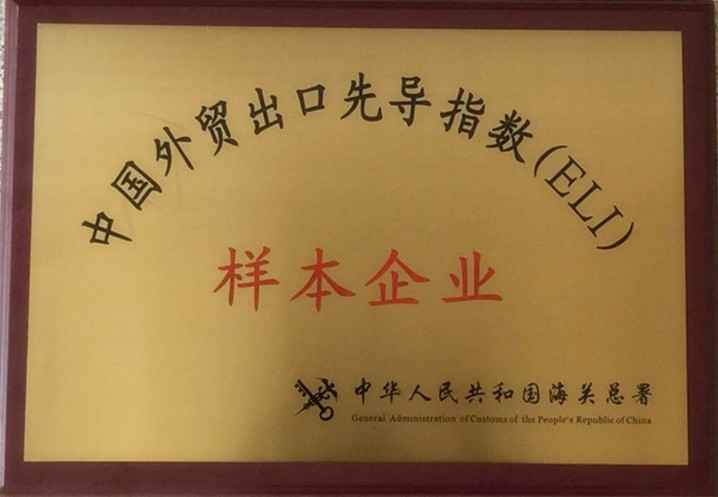 中国外贸出口先导指数(ELI)
样本企业
中华人民共和国海关总署
General Administration of Customs of the People's Republic of China